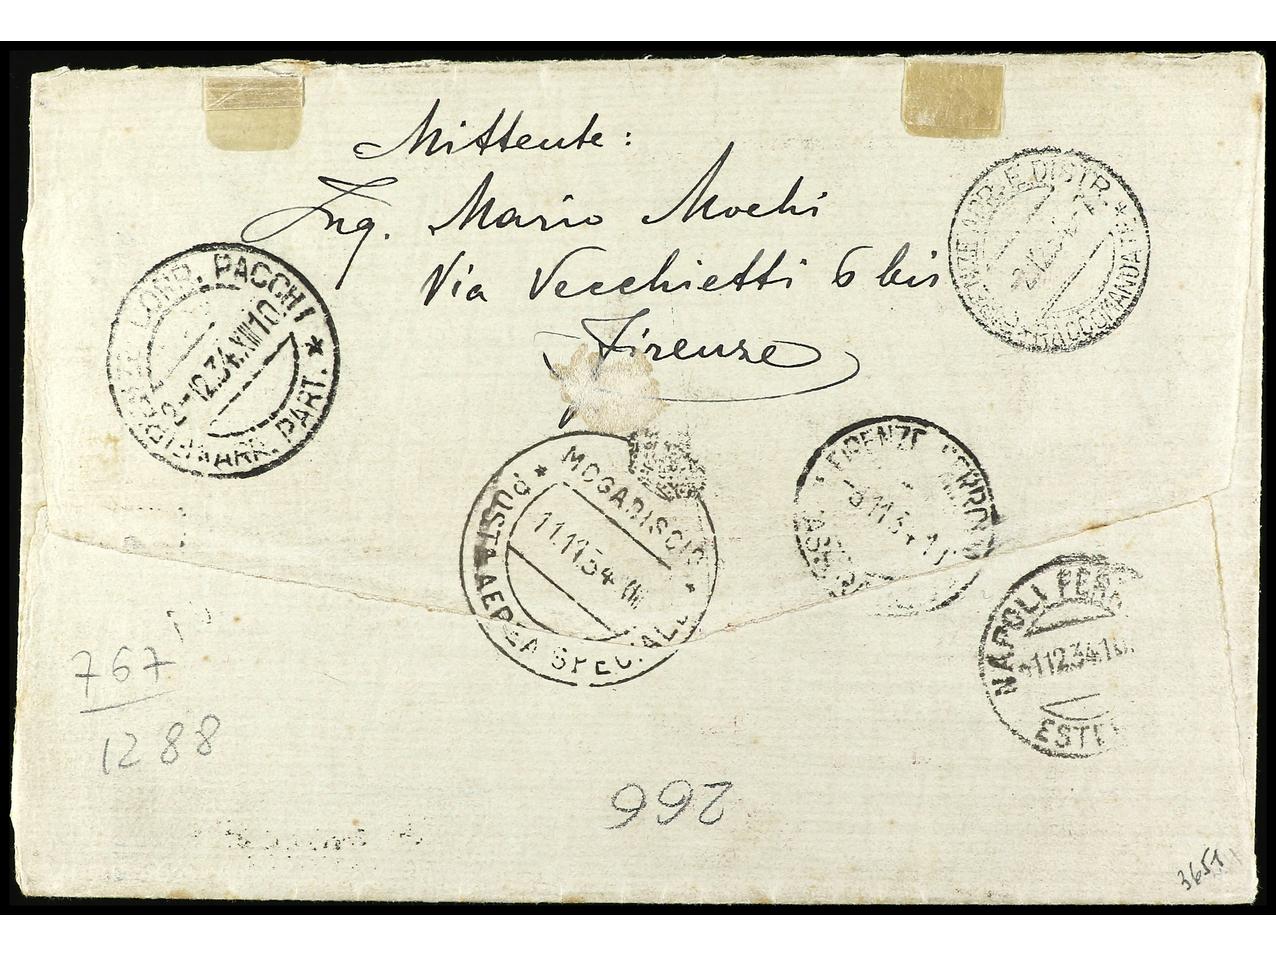 Mittente:
Ing. Mario Mochi
Via Vecchietti 6 bis
Firenze
CORR. PACCHI *
2-12.34.XIII 10
ARR. PART.
ARR. E DISTR. *
2.12.34
RACCOMANDATE
* MOGADISCIO *
11.11.34 XIII
POSTA AEREA SPECIALE
FIRENZE FERROVIA
NAPOLI FERR
1 12.34.1
ESTE
767
1288
266
3651